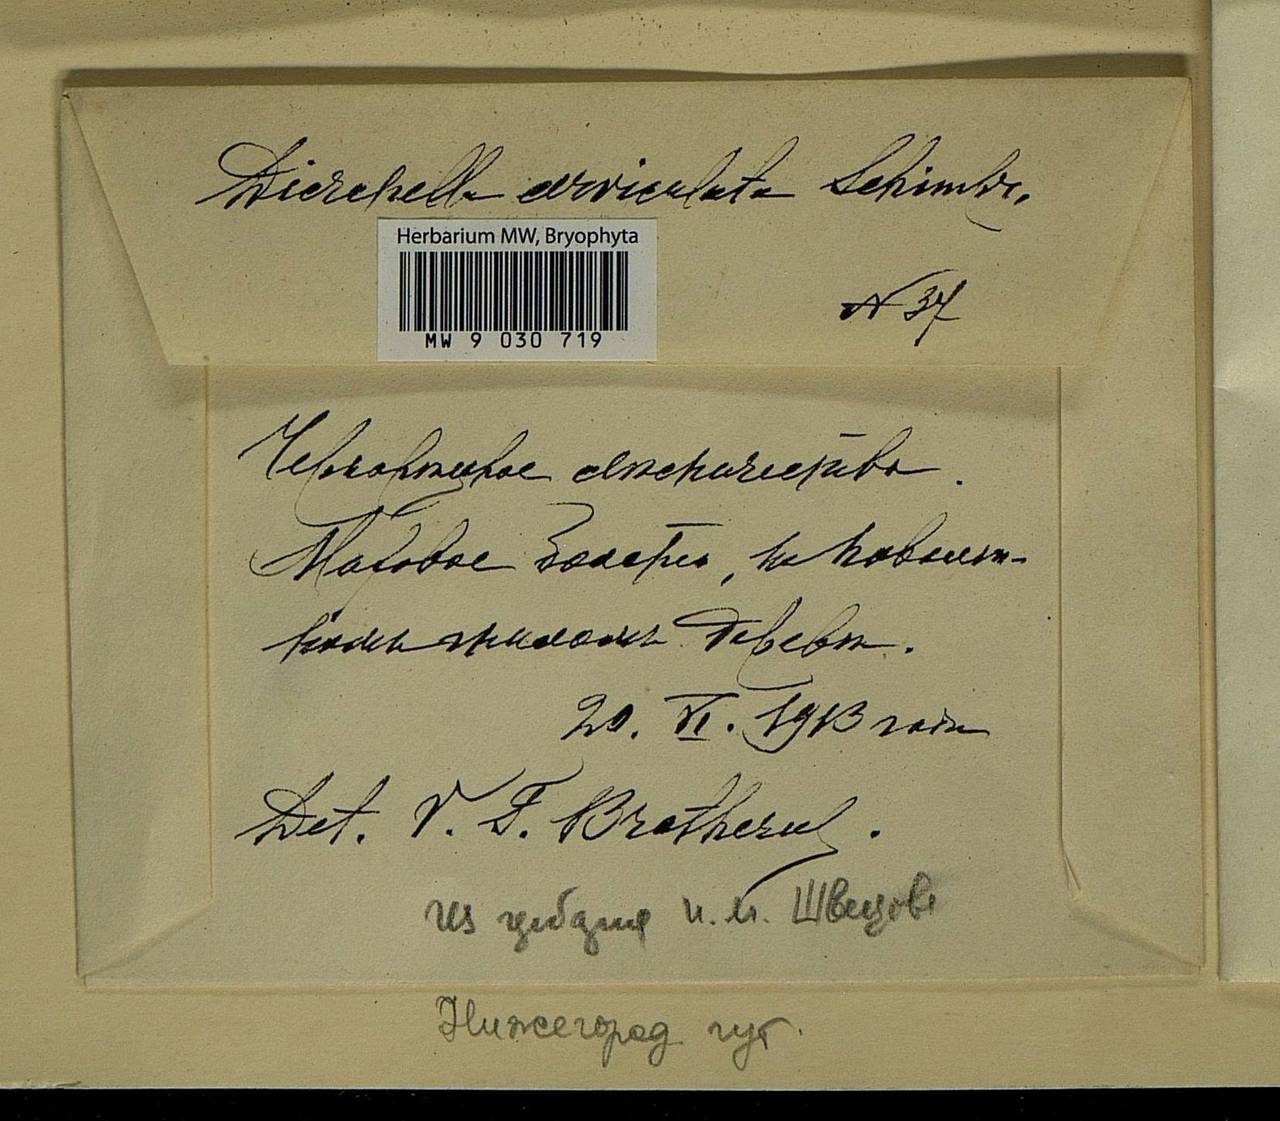 Dicranella cerviculata Schimbr.
Herbarium MW, Bryophyta
MW 9 030 719
N 37
Черноρѣцкое лѣсничество.
Моховое болото, на повален-
номъ гниломъ деревѣ.
20. VI. 1913 года
Det. V. F. Brotherus.
Из н. м. Швецова
Нижегород губ.